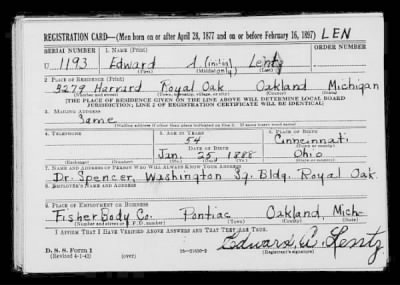 REGISTRATION CARD—(Men born on or after April 28, 1877 and on or before February 16, 1897) LEN
SERIAL NUMBER 1. NAME (Print) ORDER NUMBER
U 1193 Edward A (initial only) Lentz
(First) (Middle) (Last)
2. PLACE OF RESIDENCE (Print)
3279 Harvard Royal Oak Oakland Michigan
(Number and street) (Town, township, village, or city) (County) (State)
[THE PLACE OF RESIDENCE GIVEN ON THE LINE ABOVE WILL DETERMINE LOCAL BOARD
JURISDICTION; LINE 2 OF REGISTRATION CERTIFICATE WILL BE IDENTICAL]
3. MAILING ADDRESS
Same
[Mailing address if other than place indicated on line 2. If same insert word same]
4. TELEPHONE 5. AGE IN YEARS 6. PLACE OF BIRTH
54 Cincinnati
DATE OF BIRTH (Town or county)
Jan. 25 1888 Ohio
(Exchange) (Number) (Mo.) (Day) (Yr.) (State or country)
7. NAME AND ADDRESS OF PERSON WHO WILL ALWAYS KNOW YOUR ADDRESS
Dr. Spencer, Washington Sq. Bldg. Royal Oak
8. EMPLOYER'S NAME AND ADDRESS
9. PLACE OF EMPLOYMENT OR BUSINESS
Fisher Body Co. Pontiac Oakland, Mich
(Number and street or R. F. D. number) (Town) (County) (State)
I AFFIRM THAT I HAVE VERIFIED ABOVE ANSWERS AND THAT THEY ARE TRUE.
D. S. S. Form 1
(Revised 4-1-42) (over) Edward A. Lentz
(Registrant's signature)